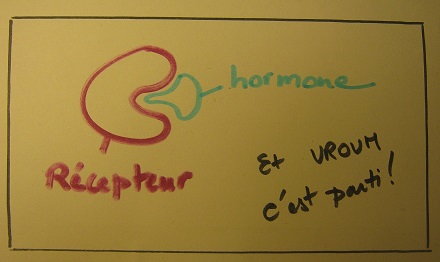 hormone
Récepteur
Et VROUM
c'est parti!